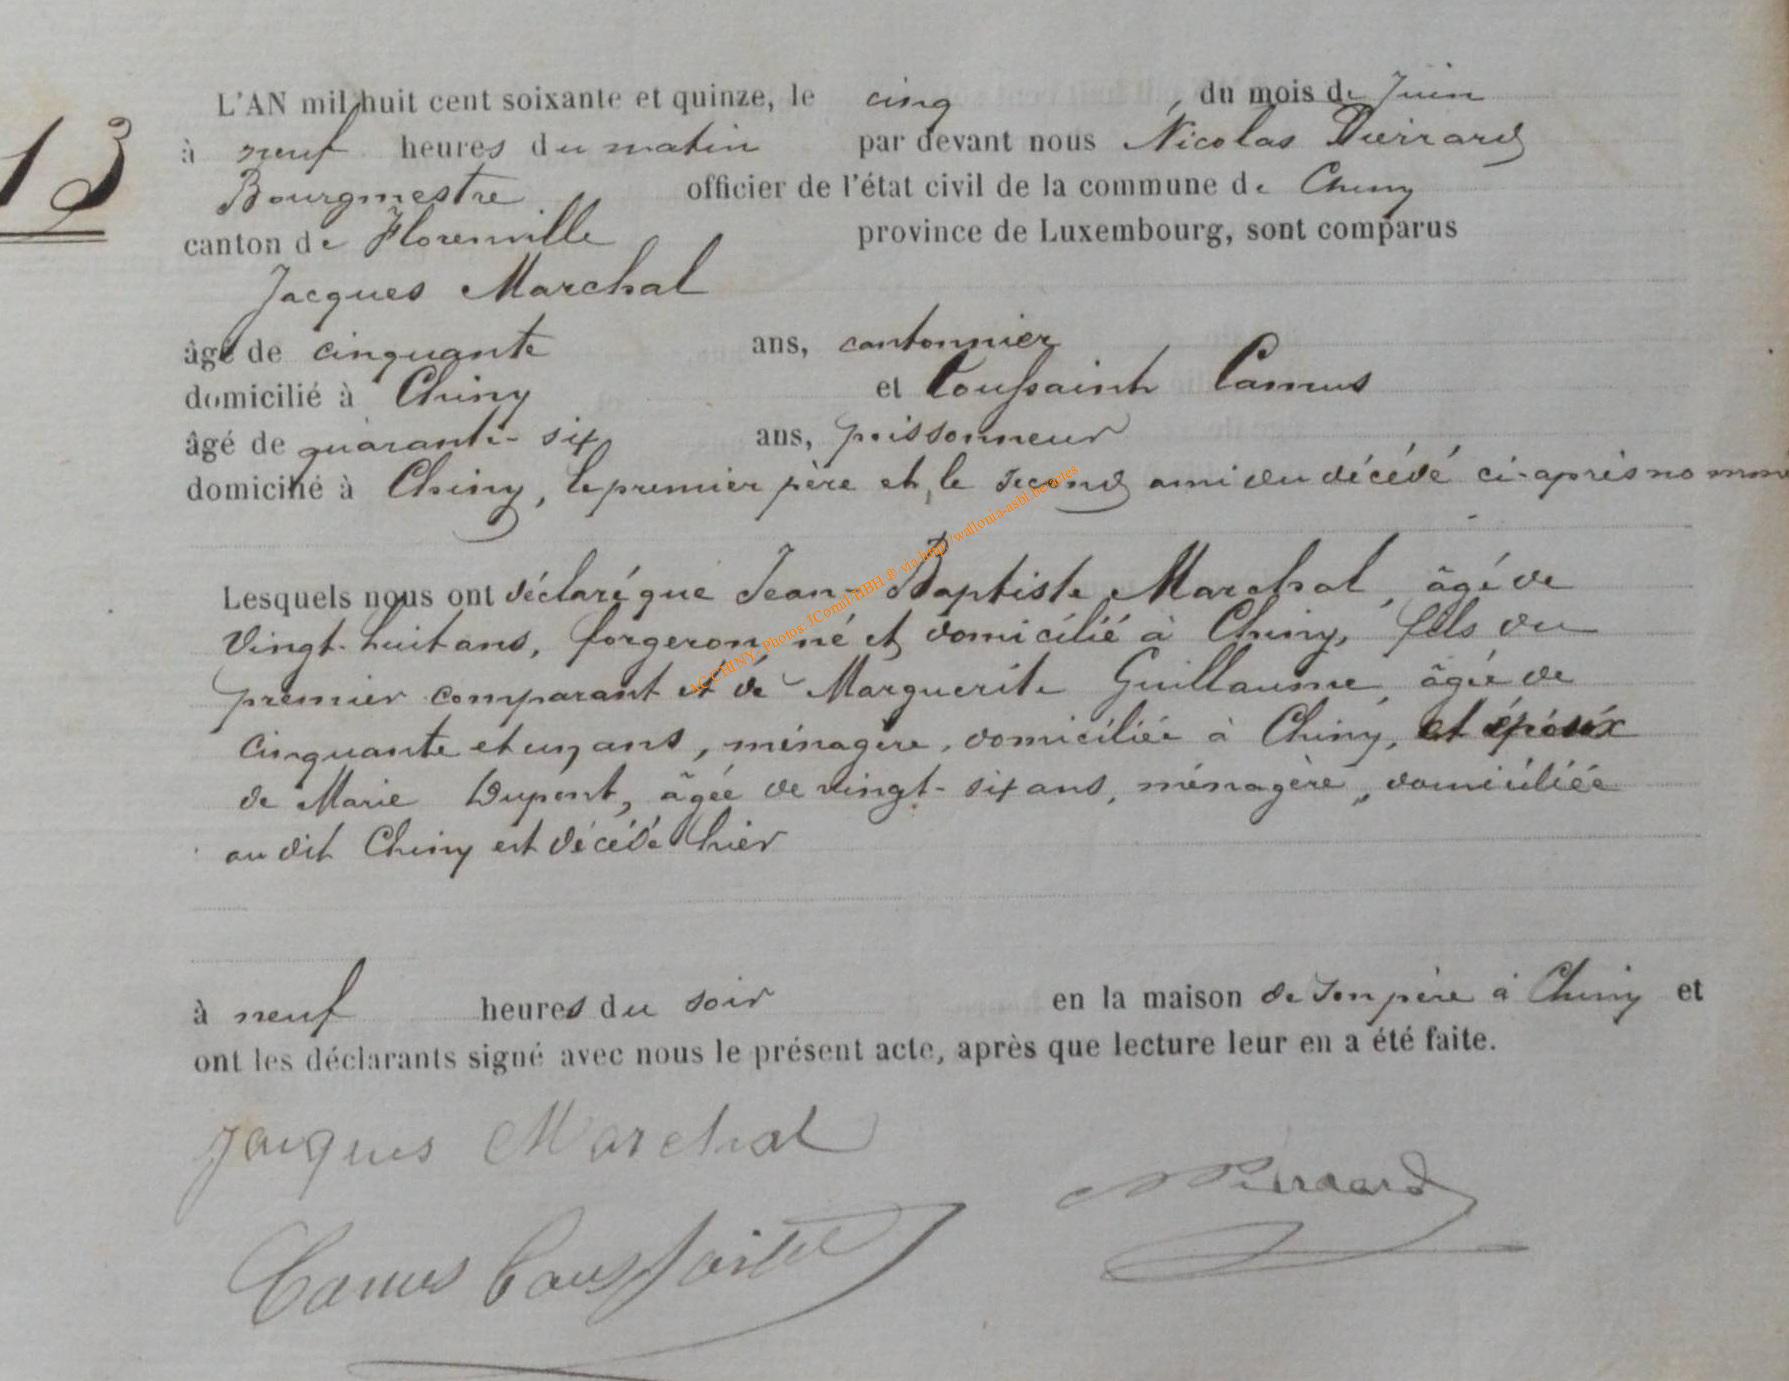 13
L'AN mil huit cent soixante et quinze, le cinq, du mois de Juin
à neuf heures du matin par devant nous Nicolas Pierrard
Bourgmestre officier de l'état civil de la commune de Chiny
canton de Florenville province de Luxembourg, sont comparus
Jacques Marchal
âgé de cinquante ans, cantonnier
domicilié à Chiny et Toussaint Camus
âgé de quarante-six ans, poissonneur
domicilié à Chiny, le premier père et le second ami du décédé ci-après nommé
Lesquels nous ont déclaré que Jean-Baptiste Marchal, âgé de
vingt-huit ans, forgeron, né et domicilié à Chiny, fils du
premier comparant et de Marguerite Guillaume, âgée de
cinquante et un ans, ménagère, domiciliée à Chiny, et époux
de Marie Dupont, âgée de vingt-six ans, ménagère, domiciliée
au dit Chiny est décédé hier
à neuf heures du soir en la maison de son père à Chiny et
ont les déclarants signé avec nous le présent acte, après que lecture leur en a été faite.
Jacques Marchal
NPierrard
Camus Toussaint